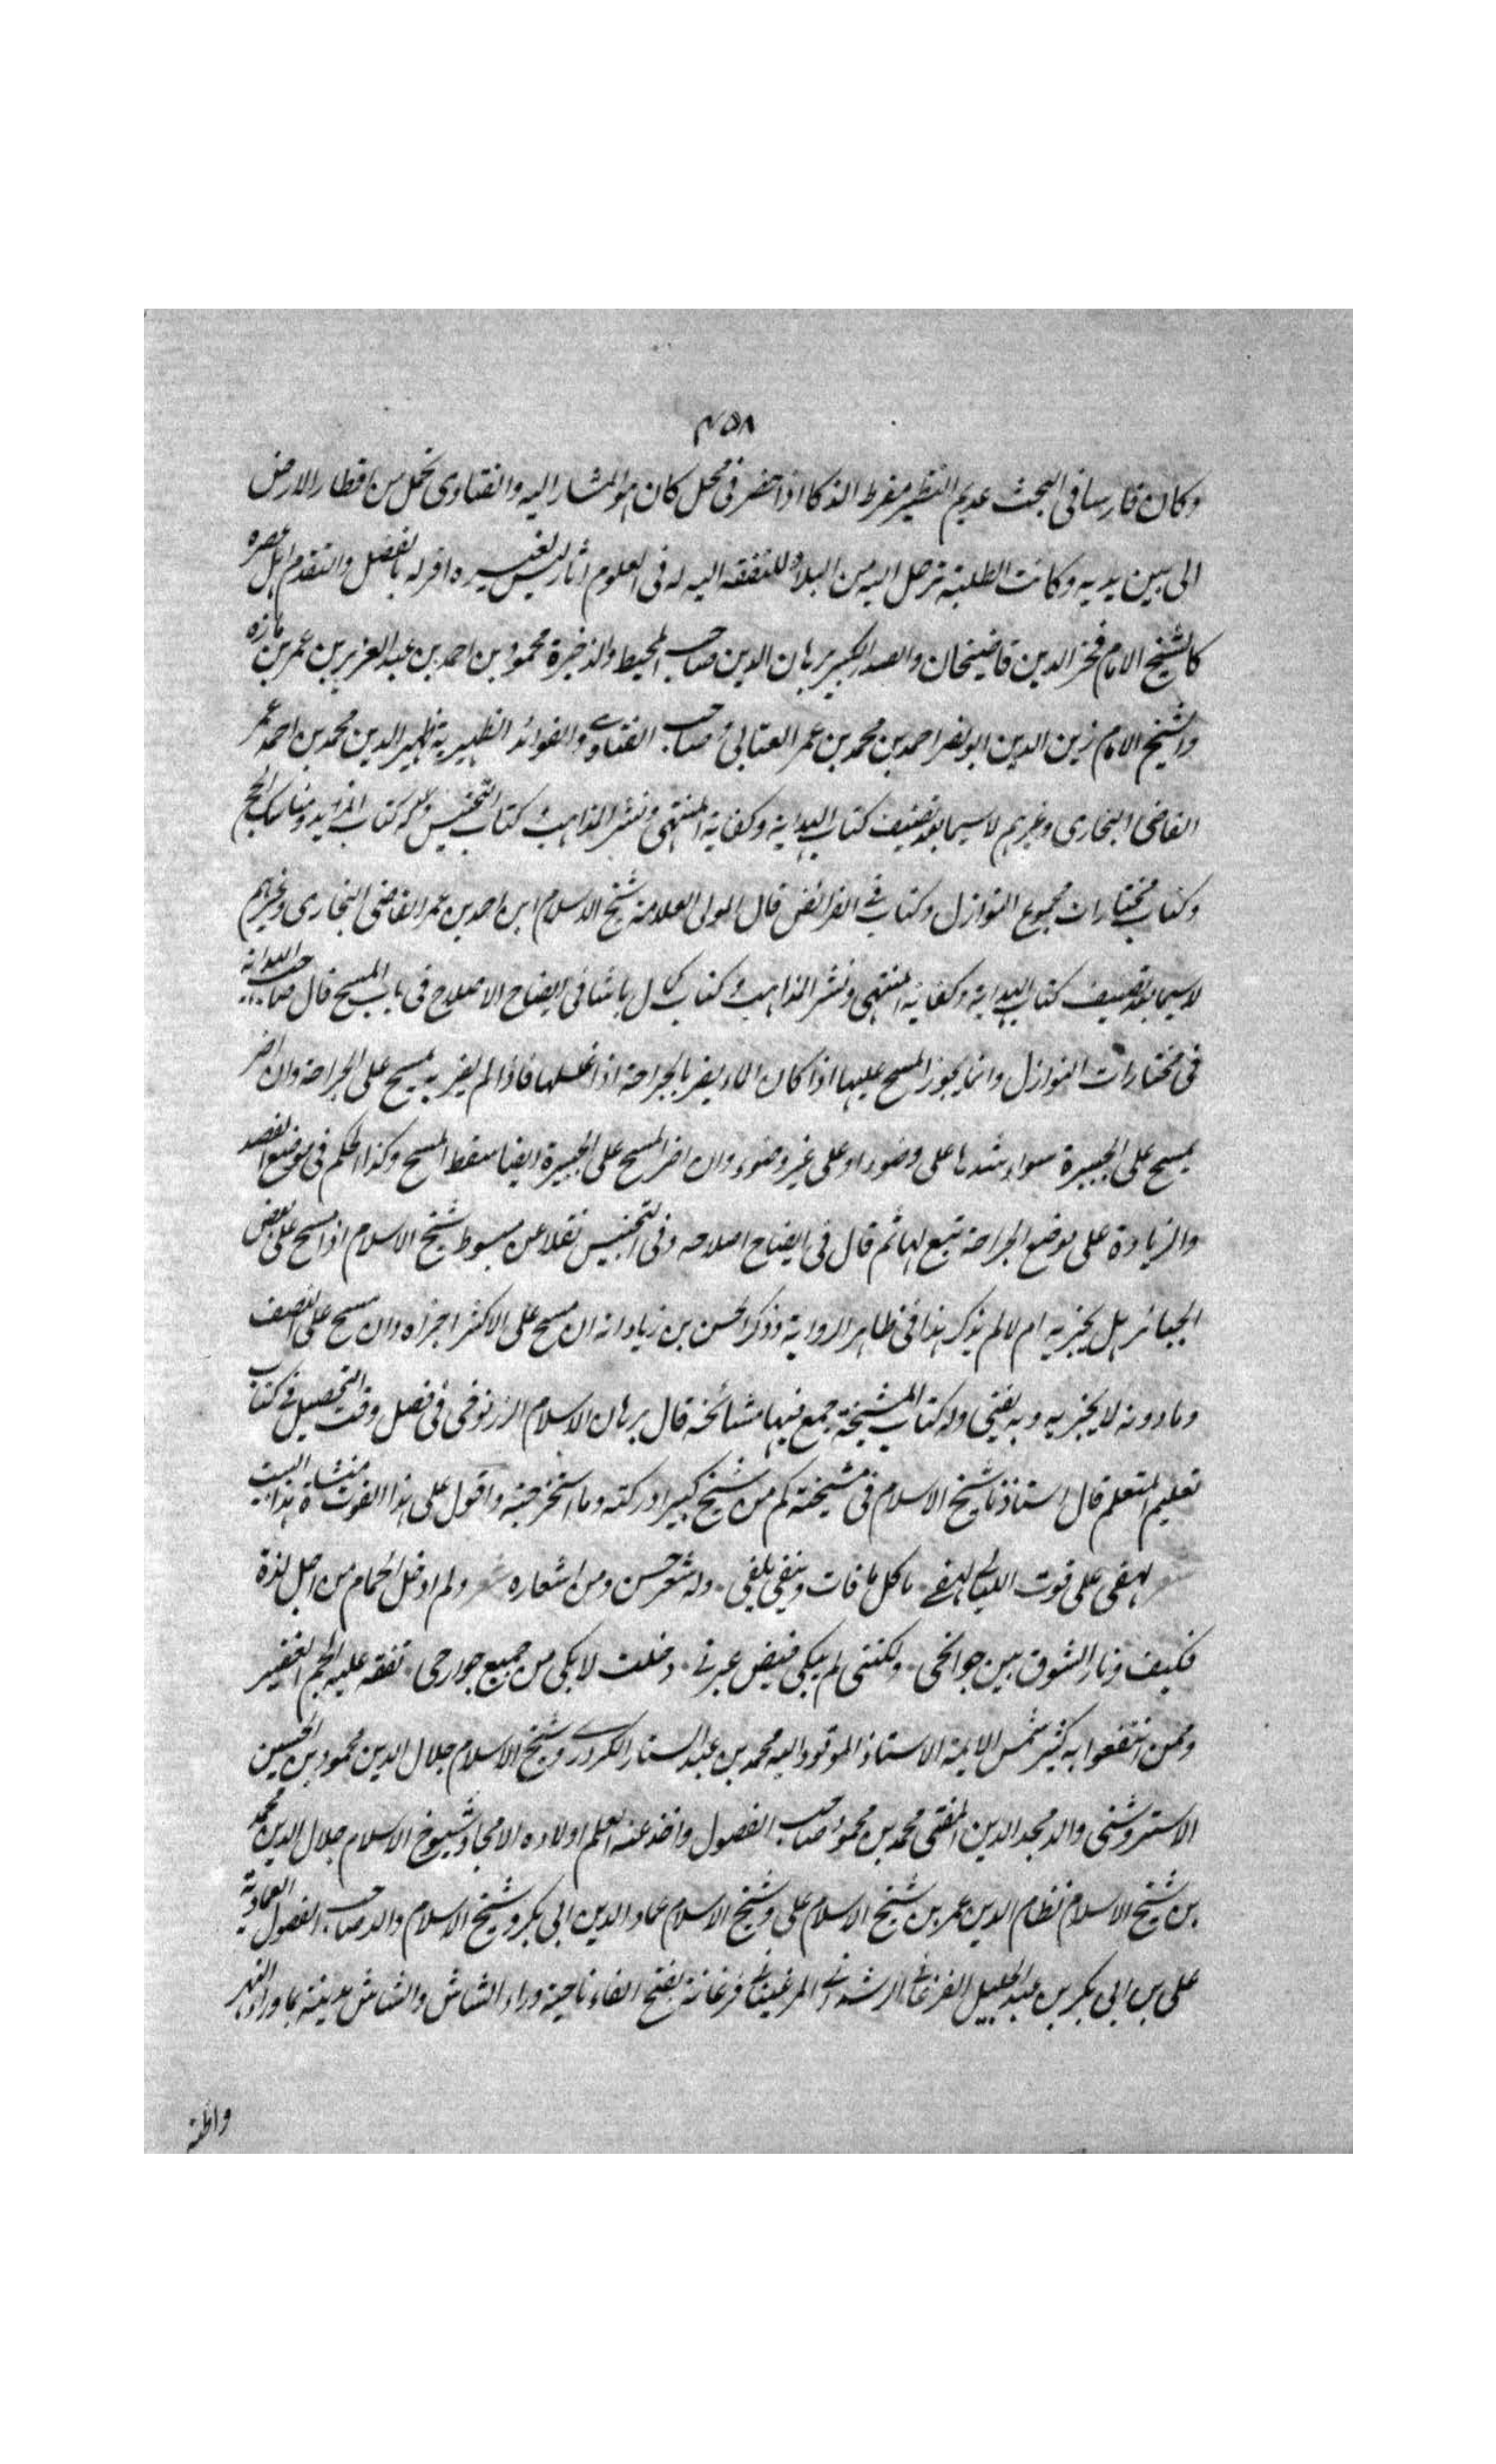 ٤٥٨
وكان فارسا فى البحث عديم النظير مفرط الذكا اذا حضر فى محل كان هو المشار اليه والفتاوى تحمل من اقطار الارض
الى بين يديه وكانت الطلبة ترحل اليه من البلاد للتفقه اليه له فى العلوم آثار ليس لغيره اقر له بالفضل والتقدم اهل عصره
كالشيخ الامام فخر الدين قاضيخان والصدر الكبير برهان الدين صاحب المحيط والذخيرة محمود بن احمد بن عبد العزيز بن عمر بن مازه
والشيخ الامام زين الدين ابو نصر احمد بن محمد بن عمر العتابى وصاحب الفتاوى والفوائد الظهيرية ظهير الدين محمد بن احمد عمر
القاضى البخارى وغيرهم لا سيما بعد تصنيف كتاب الهداية وكفاية المنتهى ونشر المذاهب وكتاب التجنيس وله كتاب المزيد ومناسك الحج
وكتاب مختارات مجموع النوازل وكتاب فى الفرائض قال المولى العلامة شيخ الاسلام ابن احمد بن عمر القاضى البخارى وغيرهم
لا سيما بعد تصنيف كتاب الهداية وكفاية المنتهى ونشر المذاهب وكتاب كمال باشا فى ايضاح الاصلاح فى باب المسح قال صاحب الهداية
فى مختارات النوازل وانما يجوز المسح عليها اذا كان الماء يضر بالجراحة اذا غسلها فاذا لم يضر به يمسح على الجراحة وان اضر
يمسح على الجبيرة سواء شدها على وضوء او على غير وضوء وان اضر المسح على الجبيرة ايضا سقط المسح وكذا الحكم فى موضع الفصد
والزيادة على موضع الجراحة تبع لها ثم قال فى ايضاح اصلاحه وفى التجنيس نقلا عن مبسوط شيخ الاسلام اذا مسح على بعض
الجبائر هل يجزيه ام لا لم يذكر هذا فى ظاهر الرواية وذكر الحسن بن زياد انه ان مسح على الاكثر اجزاه وان مسح على النصف
وما دونه لا يجزيه وبه يفتى وله كتاب المشيخة جمع فيها مشائخه قال برهان الاسلام الزرنوجى فى فصل وقت التحصيل فى كتاب
تعليم المتعلم قال استاذنا شيخ الاسلام فى مشيخته كم من شيخ كبير ادركته وما استخرجته واقول على هذا الفوت منشاة هذا البيت
لهفى على فوت الليالى لهفى ٠ ما كل ما فات ويبقى يلفى ٠ وله شعر حسن ومن اشعاره شعر ولم ادخل الحمام من اجل لذة
فكيف ونار الشوق بين جوانحى ٠ ولكننى لم يبكى فيض عبرتى ٠ دخلت لابكى من جميع جوارحى ٠ تفقه عليه الجم الغفير
وممن انتفعوا به كثير شمس الايمة الاستاذ الموفود اليه محمد بن عبد الستار الكردرى وشيخ الاسلام جلال الدين محمود بن الحسين
الاستروشنى والد مجد الدين المفتى محمد بن محمود صاحب الفصول واخذ عنه العلم اولاده الامجاد وشيوخ الاسلام جلال الدين محمد
بن شيخ الاسلام نظام الدين عمر بن شيخ الاسلام على وشيخ الاسلام عماد الدين ابى بكر وشيخ الاسلام والد صاحب الفصول العمادية
على بن ابى بكر بن عبد الجليل الفرغانى الرشدانى المرغينانى فرغانة بفتح الفاء ناحية وراء الشاش والشاش مدينة بما وراء النهر